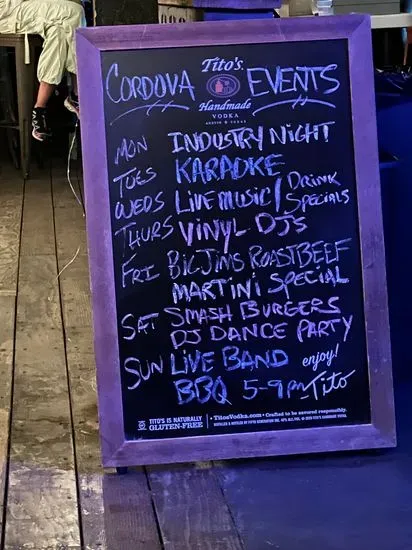 Tito's
CORDOVA EVENTS
Handmade
VODKA
AUSTIN TEXAS
MON INDUSTRY NIGHT
TUES KARAOKE
WEDS LIVE MUSIC/ DRINK SPECIALS
THURS VINYL DJS
FRI BIG JIMS ROASTBEEF
MARTINI SPECIAL
SAT SMASH BURGERS
DJ DANCE PARTY
SUN LIVE BAND enjoy!
BBQ 5-9PM Tito
TITO'S IS NATURALLY
GLUTEN-FREE
• TitosVodka.com • Crafted to be savored responsibly.